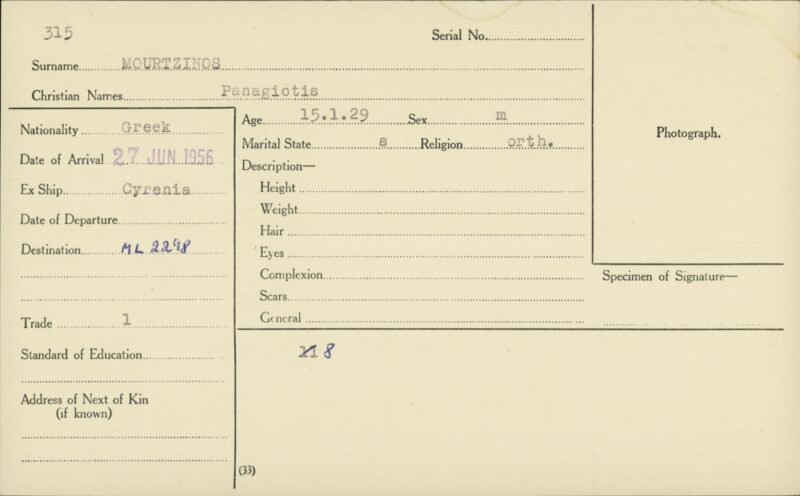 315
Serial No.
Surname MOURTZINOS
Christian Names Panagiotis
Nationality Greek
Date of Arrival 27 JUN 1956
Ex Ship Cyrenia
Date of Departure
Destination ML 2298
Trade 1
Standard of Education
Address of Next of Kin
(if known)
Age 15.1.29 Sex m
Marital State s Religion orth.
Description—
Height
Weight
Hair
Eyes
Complexion
Scars
General
8
(33)
Photograph.
Specimen of Signature—